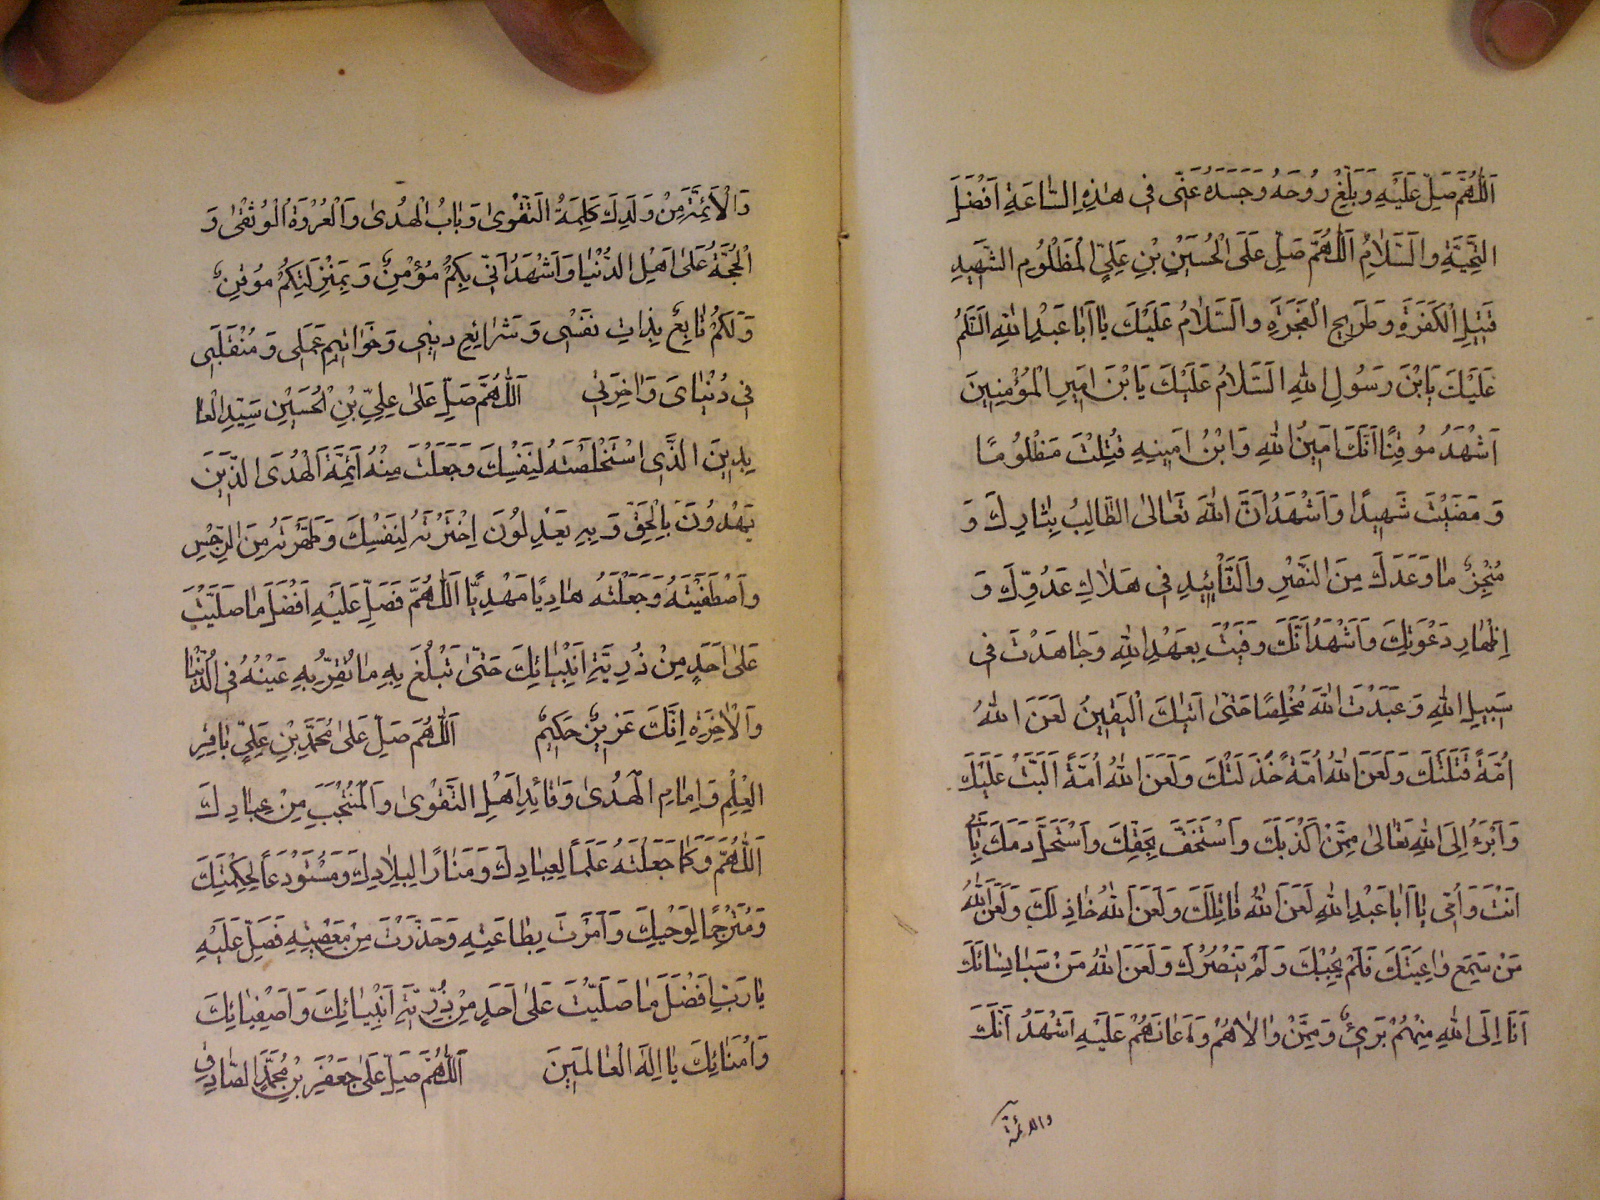 اَللّٰهُمَّ صَلِّ عَلَيْهِ وَبَلِّغْ رُوحَهُ وَجَسَدَهُ عَنّى فى هٰذِهِ السّٰاعَةِ اَفْضَلَ
التَّحِيَّةِ وَالسَّلاٰمِ اَللّٰهُمَّ صَلِّ عَلَى الْحُسَيْنِ بْنِ عَلِىٍّ الْمَظْلُومِ الشَّهِيدِ
قَتيلِ الْكَفَرَةِ وَطَريحِ الْفَجَرَةِ وَالسَّلاٰمُ عَلَيْكَ يٰا اَبٰا عَبْدِ اللهِ السَّلٰمُ
عَلَيْكَ يَابْنَ رَسُولِ اللهِ السَّلاٰمُ عَلَيْكَ يَابْنَ اَميرِ الْمُؤْمِنِينَ
اَشْهَدُ مُوقِنًا اَنَّكَ اَمينُ اللهِ وَابْنُ اَمينِهِ قُتِلْتَ مَظْلُومًا
وَمَضَيْتَ شَهيدًا وَاَشْهَدُ اَنَّ اللهَ تَعٰالىٰ الطّٰالِبُ بِثٰارِكَ وَ
مُنْجِزٌ مٰا وَعَدَكَ مِنَ النَّصْرِ وَالتَّأْيِيدِ فى هَلاٰكِ عَدُوِّكَ وَ
اِظْهٰارِ دَعْوَتِكَ وَاَشْهَدُ اَنَّكَ وَفَيْتَ بِعَهْدِ اللهِ وَجٰاهَدْتَ فى
سَبيلِ اللهِ وَعَبَدْتَ اللهَ مُخْلِصًا حَتّىٰ اَتٰيكَ الْيَقينُ لَعَنَ اللهُ
اُمَّةً قَتَلَتْكَ وَلَعَنَ اللهُ اُمَّةً خَذَلَتْكَ وَلَعَنَ اللهُ اُمَّةً اَلَبَّتْ عَلَيْكَ
وَاَبْرَءُ اِلَى اللهِ تَعٰالىٰ مِمَّنْ اَكْذَبَكَ وَاسْتَخَفَّ بِحَقِّكَ وَاسْتَحَلَّ دَمَكَ بِاَبى
اَنْتَ وَاُمّى يٰا اَبٰا عَبْدِ اللهِ لَعَنَ اللهُ قٰاتِلَكَ وَلَعَنَ اللهُ خٰاذِلَكَ وَلَعَنَ اللهُ
مَنْ سَمِعَ وٰاعِيَتَكَ فَلَمْ يُجِبْكَ وَلَمْ يَنْصُرْكَ وَلَعَنَ اللهُ مَنْ سَبٰا نِسٰائَكَ
اَنَا اِلَى اللهِ مِنْهُمْ بَرىءٌ وَمِمَّنْ وٰالاٰهُمْ وَاَعٰانَهُمْ عَلَيْهِ اَشْهَدُ اَنَّكَ
والائمة
وَالْاَئِمَّةَ مِنْ وَلَدِكَ كَلِمَةُ التَّقْوىٰ وَبٰابُ الْهُدىٰ وَالْعُرْوَةُ الْوُثْقىٰ وَ
الْحُجَّةُ عَلىٰ اَهْلِ الدُّنْيٰا وَاَشْهَدُ اَنّى بِكُمْ مُؤْمِنٌ وَبِمَنْزِلَتِكُمْ مُوقِنٌ
وَلَكُمْ تٰابِعٌ بِذٰاتِ نَفْسى وَشَرٰايِعِ دينى وَخَوٰاتيمِ عَمَلى وَمُنْقَلَبى
فى دُنْيٰاىَ وَاٰخِرَتى اَللّٰهُمَّ صَلِّ عَلىٰ عَلِىِّ بْنِ الْحُسَيْنِ سَيِّدِ الْعٰا
بِدينَ الَّذى اسْتَخْلَصْتَهُ لِنَفْسِكَ وَجَعَلْتَ مِنْهُ اَئِمَّةَ الْهُدَى الَّذينَ
يَهْدُونَ بِالْحَقِّ وَبِهِ يَعْدِلُونَ اِخْتَرْتَهُ لِنَفْسِكَ وَطَهَّرْتَهُ مِنَ الرِّجْسِ
وَاصْطَفَيْتَهُ وَجَعَلْتَهُ هٰادِيًا مَهْدِيًّا اَللّٰهُمَّ فَصَلِّ عَلَيْهِ اَفْضَلَ مٰا صَلَّيْتَ
عَلىٰ اَحَدٍ مِنْ ذُرِّيَّةِ اَنْبِيٰائِكَ حَتّىٰ تَبْلُغَ بِهِ مٰا تُقِرُّ بِهِ عَيْنُهُ فِى الدُّنْيٰا
وَالْاٰخِرَةِ اِنَّكَ عَزيزٌ حَكيمٌ اَللّٰهُمَّ صَلِّ عَلىٰ مُحَمَّدِ بْنِ عَلِىٍّ بٰاقِرِ
الْعِلْمِ وَاِمٰامِ الْهُدىٰ وَقٰائِدِ اَهْلِ التَّقْوىٰ وَالْمُنْتَجَبِ مِنْ عِبٰادِكَ
اَللّٰهُمَّ وَكَمٰا جَعَلْتَهُ عَلَماً لِعِبٰادِكَ وَمَنٰارًا لِبِلاٰدِكَ وَمُسْتَوْدَعاً لِحِكْمَتِكَ
وَمُتَرْجِمًا لِوَحْيِكَ وَاَمَرْتَ بِطٰاعَتِهِ وَحَذَّرْتَ مِنْ مَعْصِيَتِهِ فَصَلِّ عَلَيْهِ
يٰا رَبِّ اَفْضَلَ مٰا صَلَّيْتَ عَلىٰ اَحَدٍ مِنْ ذُرِّيَّةِ اَنْبِيٰائِكَ وَاَصْفِيٰائِكَ
وَاُمَنٰائِكَ يٰا اِلٰهَ الْعٰالَمينَ اَللّٰهُمَّ صَلِّ عَلىٰ جَعْفَرِ بْنِ مُحَمَّدٍ الصّٰادِقِ